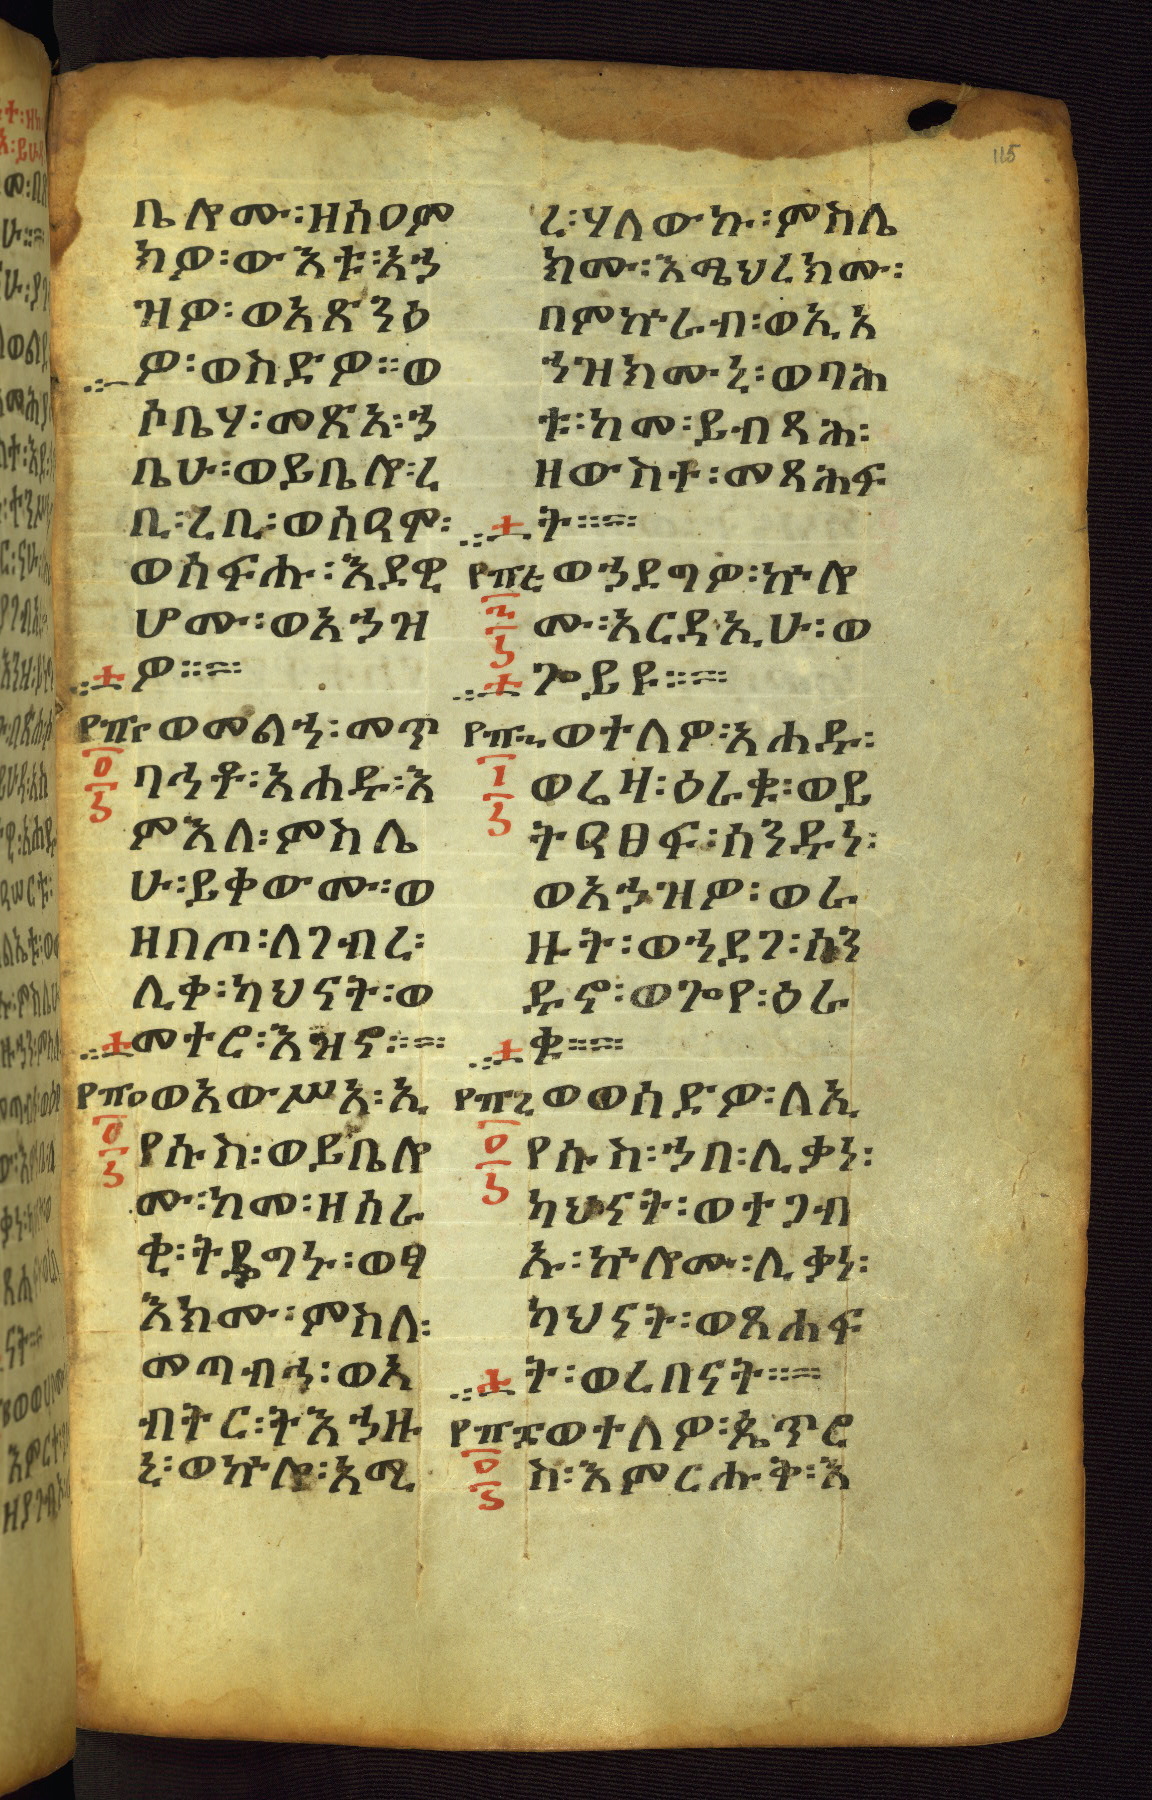 115
ቤሎሙ፡ዘሰዐም
ክዎ፡ውእቱ፡አኀ
ዝዎ፡ወአጽንዕ
ዎ፡ወስድዎ፡፡ወ
ሶቤሃ፡መጽአ፡ኀ
ቤሁ፡ወይቤሎ፡ረ
ቢ፡ረቢ፡ወሰዓሞ፡
ወሰፍሑ፡እደዊ
ሆሙ፡ወአኀዝ
ዎ፡፡
፻፹፫ወመልኀ፡መጥ
ባኅቶ፡አሐዱ፡እ
ምእለ፡ምስሌ
ሁ፡ይቀውሙ፡፡ወ
ዘበጦ፡ለገብረ፡
ሊቀ፡ካህናት፡ወ
መተሮ፡እዝኖ፡፡
፻፹፬ወአውሥአ፡ኢ
የሱስ፡ወይቤሎ
ሙ፡ከመ፡ዘሰራ
ቂ፡ትዴግኑ፡ወፃ
እክሙ፡ምስለ፡
መጣብኅ፡ወእ
ብትር፡ትእኀዙ
ኒ፡ወኵሎ፡አሚ
ረ፡ሃለውኩ፡ምስሌ
ክሙ፡እሜህረክሙ፡
በምኵራብ፡ወኢአ
ኀዝክሙኒ፡ወባሕ
ቱ፡ከመ፡ይብጻሕ፡
ዘውስተ፡መጻሕፍ
ት፡፡
፻፹፭ወኀደግዎ፡ኵሎ
ሙ፡አርዳኢሁ፡ወ
ጐይዩ፡፡
፻፹፮ወተለዎ፡አሐዱ፡
ወሬዛ፡ዕራቁ፡ወይ
ትዓፀፍ፡ሰንዱነ፡
ወአኀዝዎ፡ወራ
ዙት፡ወኀደገ፡ሰን
ዱኖ፡ወጐየ፡ዕራ
ቁ፡፡
፻፹፯ወወሰድዎ፡ለኢ
የሱስ፡ኀበ፡ሊቃነ፡
ካህናት፡ወተጋብ
ኡ፡ኵሎሙ፡ሊቃነ፡
ካህናት፡ወጸሐፍ
ት፡ወረበናት፡፡
፻፹፰ወተለዎ፡ጴጥሮ
ስ፡እምርሑቅ፡እ